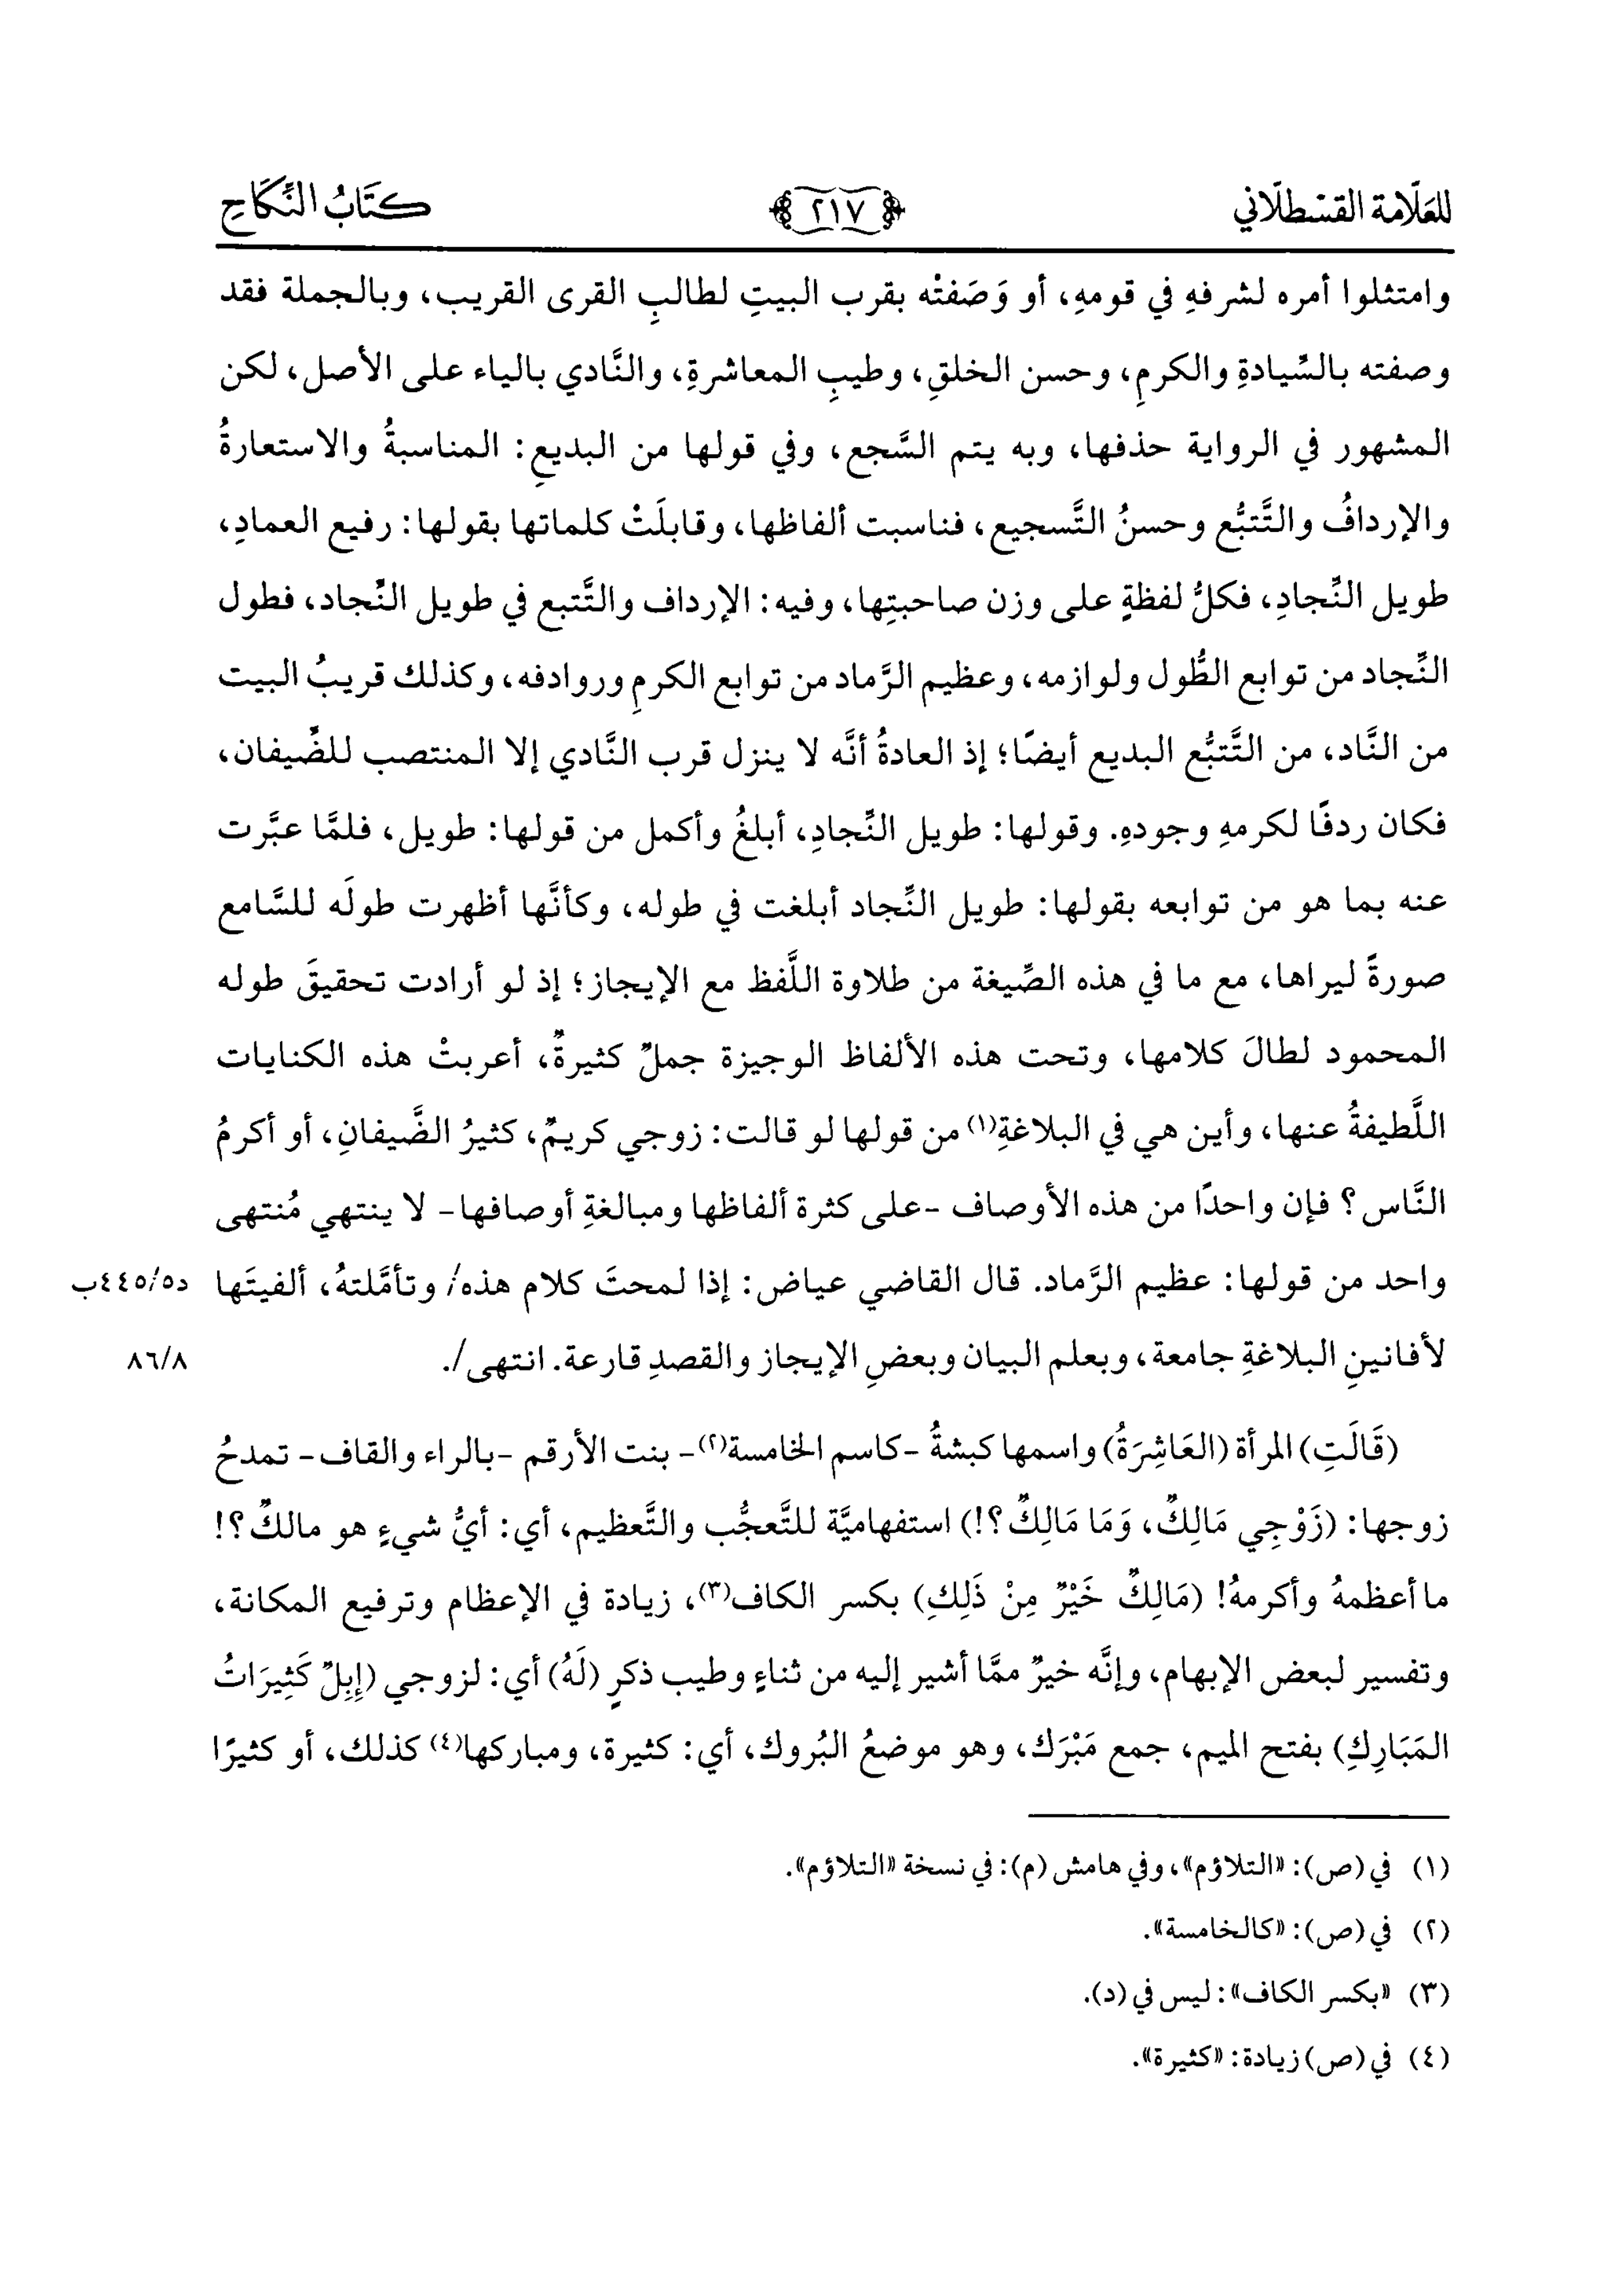 للعلّامة القسطلّاني ٢١٧ كتَابُ النِّكَاحِ
وامتثلوا أمره لشرفهِ في قومهِ، أو وَصَفتْه بقرب البيتِ لطالبِ القرى القريب، وبالجملة فقد
وصفته بالسِّيادةِ والكرمِ، وحسن الخلقِ، وطيبِ المعاشرةِ، والنَّادي بالياء على الأصل، لكن
المشهور في الرواية حذفها، وبه يتم السَّجع، وفي قولها من البديعِ: المناسبةُ والاستعارةُ
والإردافُ والتَّتبُّع وحسنُ التَّسجيع، فناسبت ألفاظها، وقابلَتْ كلماتها بقولها: رفيع العمادِ،
طويل النِّجادِ، فكلُّ لفظةٍ على وزن صاحبتِها، وفيه: الإرداف والتَّتبع في طويل النِّجاد، فطول
النِّجاد من توابع الطُّول ولوازمه، وعظيم الرَّماد من توابع الكرمِ وروادفه، وكذلك قريبُ البيت
من النَّاد، من التَّتبُّع البديع أيضًا؛ إذ العادةُ أنَّه لا ينزل قرب النَّادي إلا المنتصب للضِّيفان،
فكان ردفًا لكرمهِ وجودهِ. وقولها: طويل النِّجادِ، أبلغُ وأكمل من قولها: طويل، فلمَّا عبَّرت
عنه بما هو من توابعه بقولها: طويل النِّجاد أبلغت في طوله، وكأنَّها أظهرت طولَه للسَّامع
صورةً ليراها، مع ما في هذه الصِّيغة من طلاوة اللَّفظ مع الإيجاز؛ إذ لو أرادت تحقيقَ طوله
المحمود لطالَ كلامها، وتحت هذه الألفاظ الوجيزة جملٌ كثيرةٌ، أعربتْ هذه الكنايات
اللَّطيفةُ عنها، وأين هي في البلاغةِ(١) من قولها لو قالت: زوجي كريمٌ، كثيرُ الضَّيفانِ، أو أكرمُ
النَّاس؟ فإن واحدًا من هذه الأوصاف -على كثرة ألفاظها ومبالغةِ أوصافها- لا ينتهي مُنتهى
واحد من قولها: عظيم الرَّماد. قال القاضي عياض: إذا لمحتَ كلام هذه/ وتأمَّلتهُ، ألفيتَها د٤٤٥/٥ب
لأفانينِ البلاغةِ جامعة، وبعلم البيان وبعضِ الإيجاز والقصدِ قارعة. انتهى/. ٨٦/٨
(قَالَتِ) المرأة (العَاشِرَةُ) واسمها كبشةُ -كاسم الخامسة(٢)- بنت الأرقم -بالراء والقاف- تمدحُ
زوجها: (زَوْجِي مَالِكٌ، وَمَا مَالِكٌ؟!) استفهاميَّة للتَّعجُّب والتَّعظيم، أي: أيُّ شيءٍ هو مالكٌ؟!
ما أعظمهُ وأكرمهُ! (مَالِكٌ خَيْرٌ مِنْ ذَلِكِ) بكسر الكاف(٣)، زيادة في الإعظام وترفيع المكانة،
وتفسير لبعض الإبهام، وإنَّه خيرٌ ممَّا أشير إليه من ثناءٍ وطيب ذكرٍ (لَهُ) أي: لزوجي (إِبِلٌ كَثِيرَاتُ
المَبَارِكِ) بفتح الميم، جمع مَبْرَك، وهو موضعُ البُروك، أي: كثيرة، ومباركها(٤) كذلك، أو كثيرًا
(١) في (ص): «التلاؤم»، وفي هامش (م): في نسخة «التلاؤم».
(٢) في (ص): «كالخامسة».
(٣) «بكسر الكاف»: ليس في (د).
(٤) في (ص) زيادة: «كثيرة».